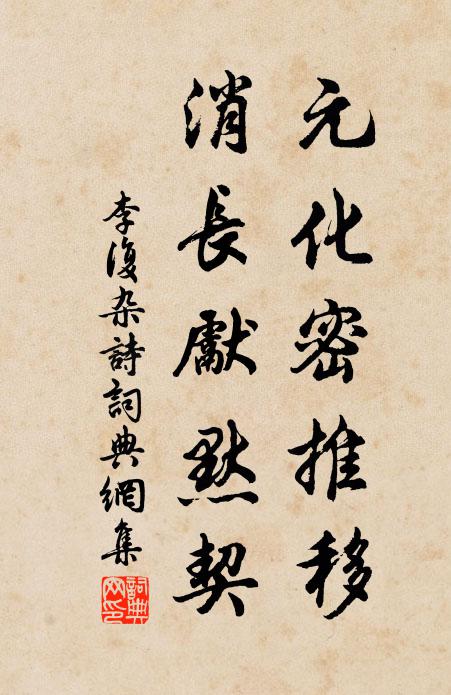 元化密推移
消長獻默契
李復杂詩詞典網集
詞典网印